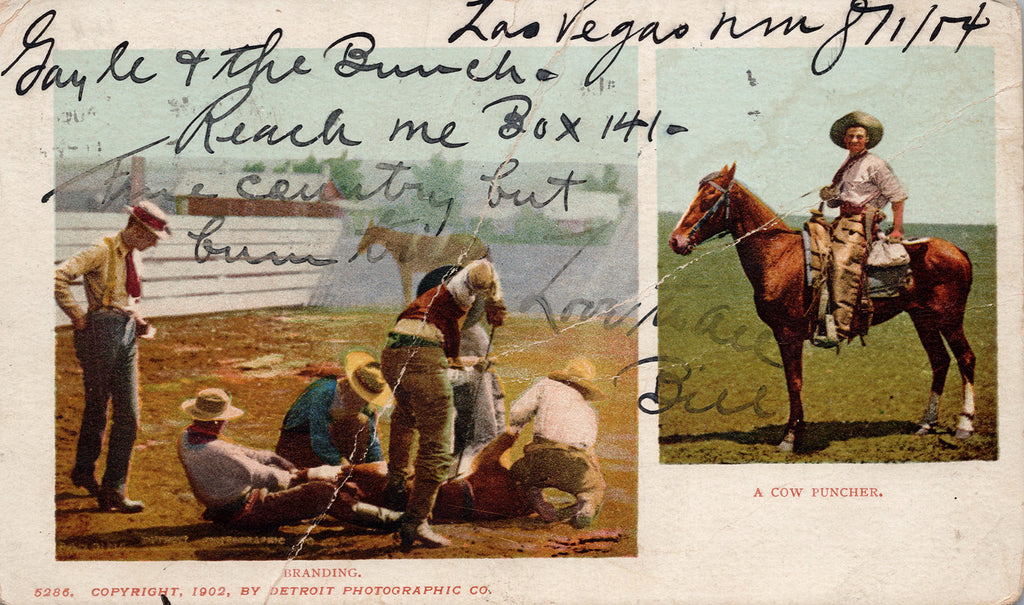 Las Vegas nm 8/1/04
Gayle & the Bunch-
Reach me Box 141-
Fine country but
bum
Bill
A COW PUNCHER.
BRANDING.
5286. COPYRIGHT, 1902, BY DETROIT PHOTOGRAPHIC CO.